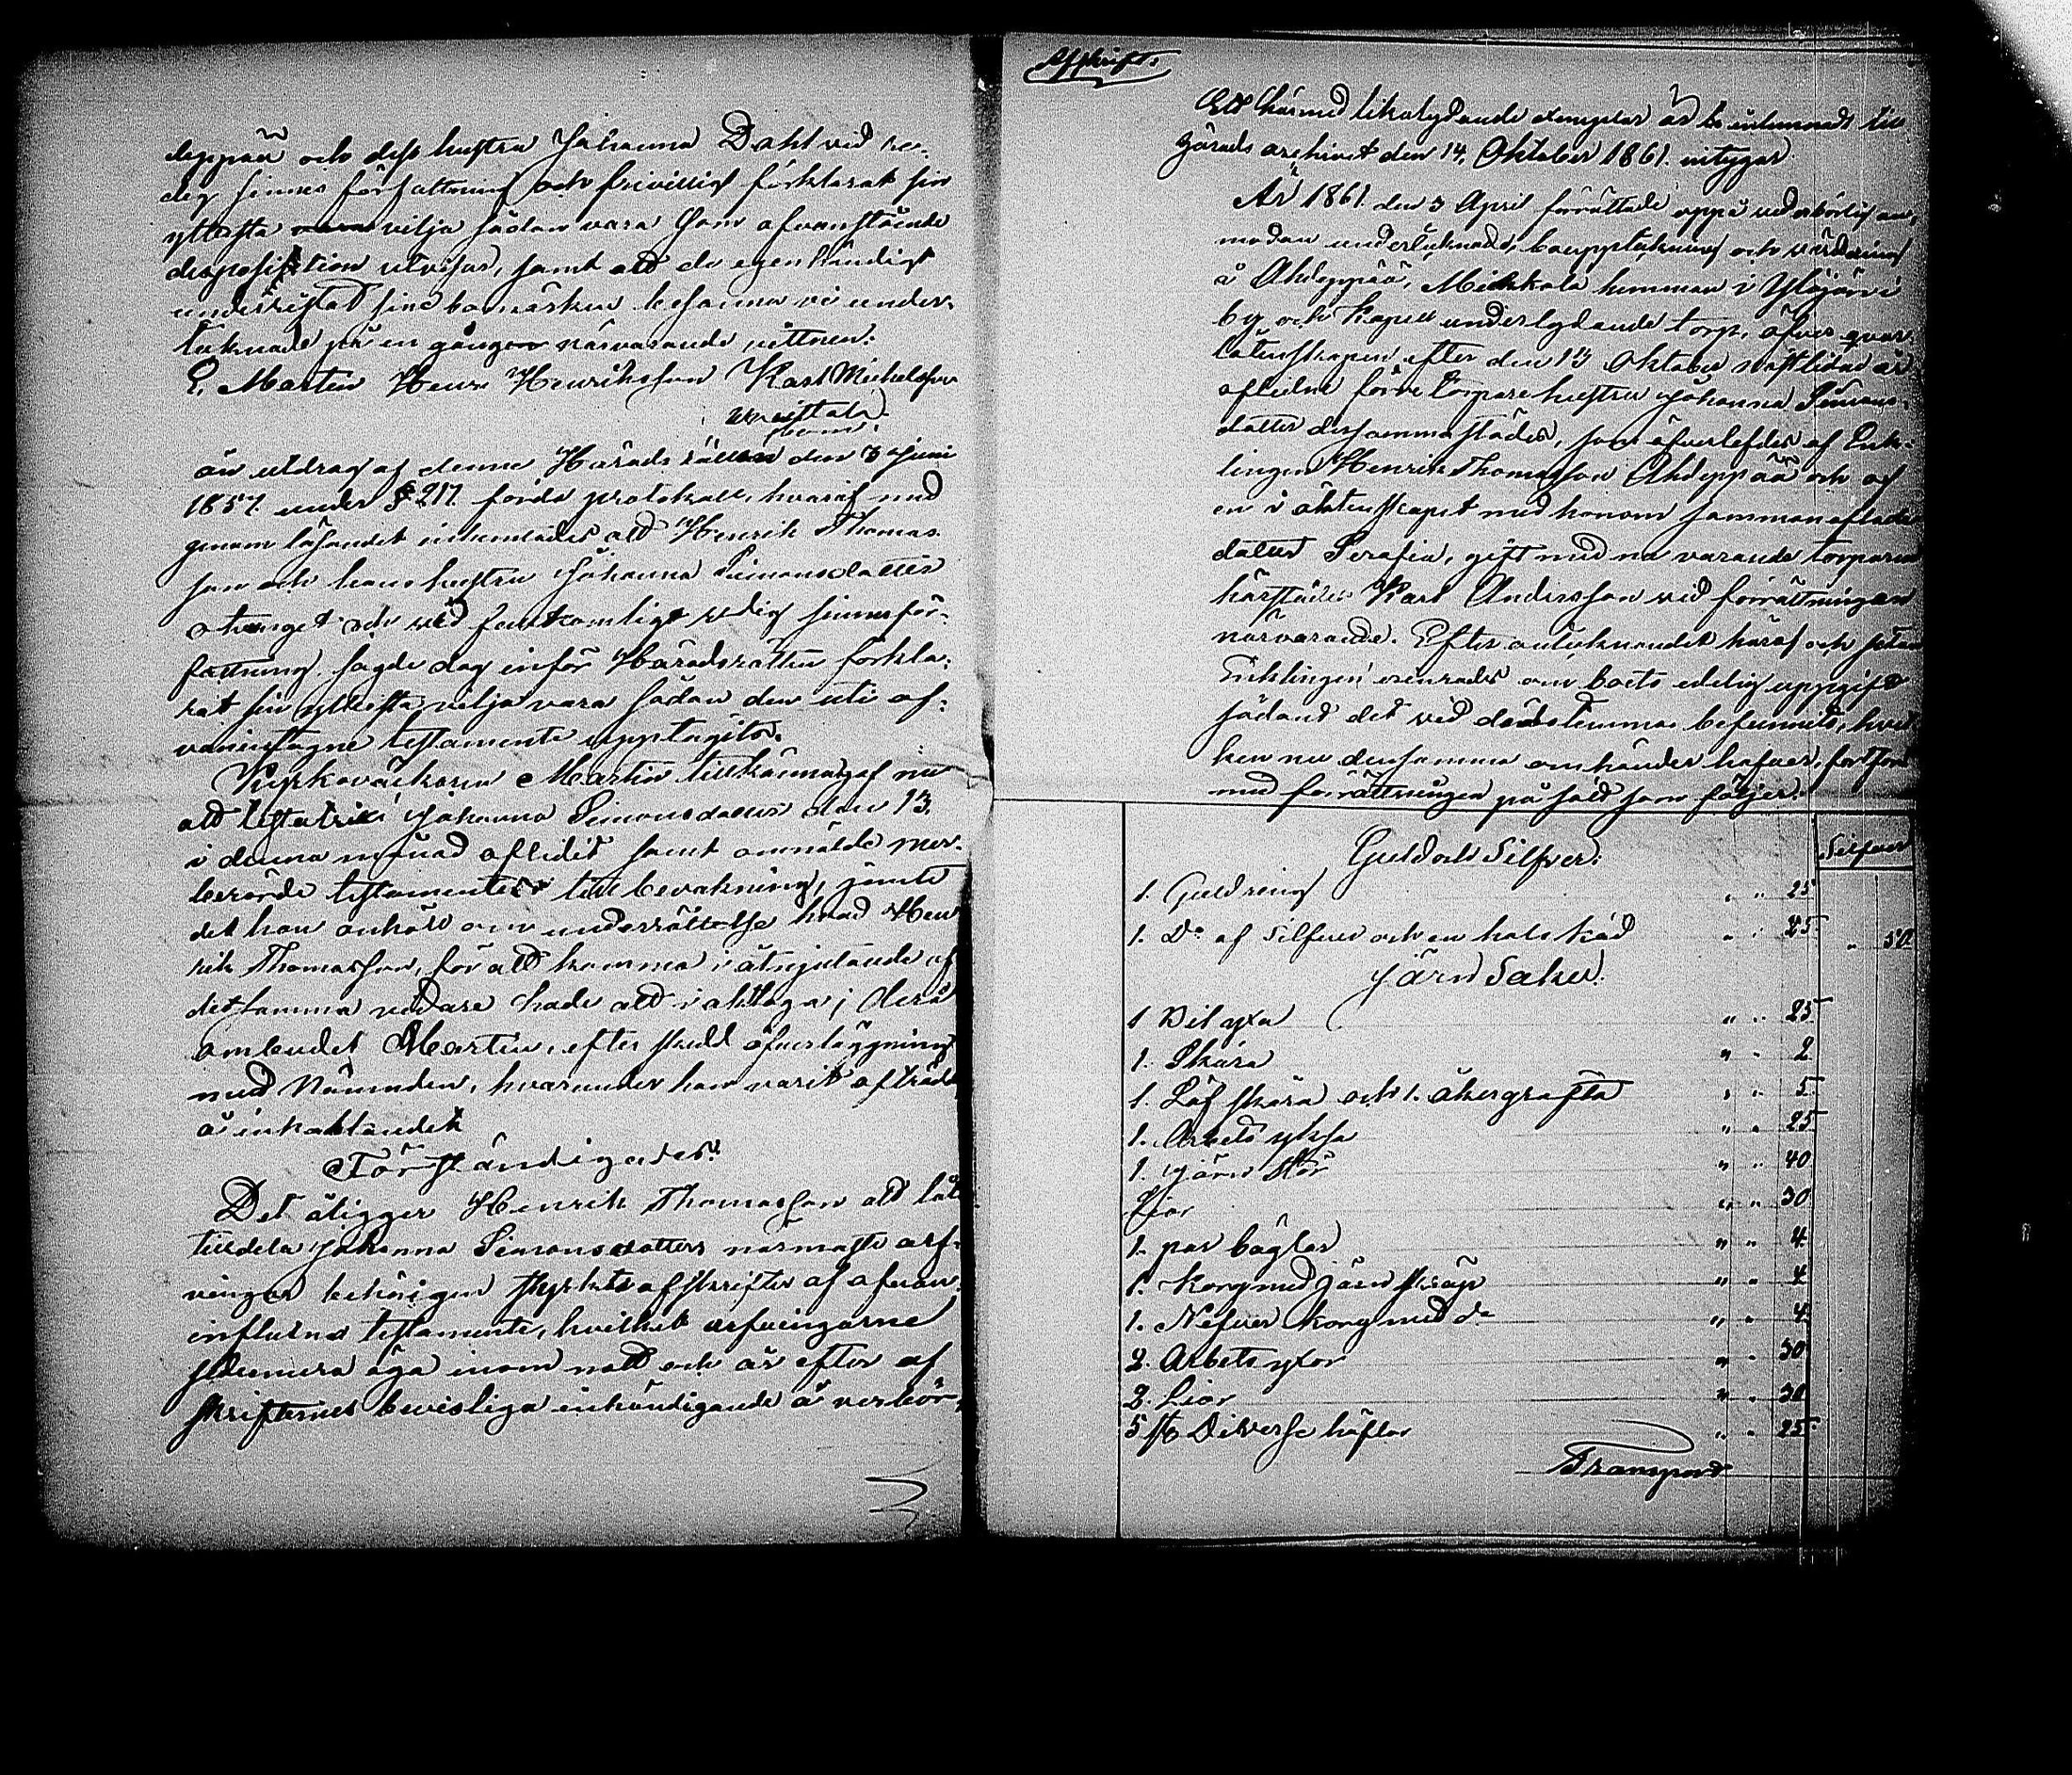 deppää och dess hustru Johanna Dahl vid re-
dig sinnes författning och frivilligt förklarat sin
yttersta vilja sådan vara som ofvanstående
disposition utvisar, samt att de egenhändigt
underristat sine bomärken besanna vi under-
teknade på en gång närvarande vittnen.
E. Martin Henr. Henriksson Karl Michelsson
än utdrag af denne Härads rättens den 3 Juni
1857 under § 217 förda protokoll, hvaraf med
genom läsandet inhemtades att Henrik Thomas-
son och hans hustru Johanna Simonsdotter
otvunget och vid fullkomligt redig sinnesför-
fattning sagde dag inför Häradsrätten förkla-
rat sin yttersta vilja vara sådan den uti of-
vanintagne testamente upptagits.
Kyrkoväktaren Martin tillkännagaf nu
att testatrixe Johanna Simonsdotter den 13.
i denna månad aflidit samt anmälde mer-
berörde testamente till bevakning, jämte
det han anhöll om underrättelse hvad Hen-
rik Thomasson, för att komma i åtnjutande af
detsamma vidare hade att i akttaga; derå
ombudet Martin, efter skedd öfverläggning
med Nämnden, hvarunder han varit afträdd
å inkallandet
Förständigades:
Det åligger Henrik Thomasson att låta
tilldela Johanna Simonsdotters närmaste arf-
vingar behörigen styrkte afskrifter af ofvan
införda testamente, hvilket arfvingarne
sedermera äga inom natt och år efter af-
skrifternes bevisliga inhändigande å verbör-
Afskrift.
Ett härmed likalydande exemplar är be inlemnadt till
Härads archivet den 14. Oktober 1861. intygar
År 1861 den 3 April förrättade uppå vederbörlig an-
modan undertecknade, bouppteckning och värdering
å Ahdeppää, Mickkola hemman i Ylöjärvi
by och Kapell underlydande torp, öfver qvar-
låtenskapen efter den 13 Oktober nästlidne år
aflidne förre torpare hustru Johanna Simons-
dotter dersammastädes, som öfverlefdes af Enk-
lingen Henrik Thomasson Ahdeppää och af
en i äktenskapet med honom sammanaflade
dotter Serafia, gift med nu varande torparen
härstädes Karl Andersson vid förrättningen
närvarande. Efter antecknandet häraf och sedan
Enklingen erinrades om boets edelig uppgift
sådant det vid dödstimman befunnits, hvil-
ken nu densamma omhänder hafver, fortfors
med förrättningen på sätt som följer:
Silfver
Guld och Silfver:
1. Guldring " " 25
1. Do af Silfver och en hals käd " " 25 " 50
Järn Saker.
1 Bil yxa " " 25
1. Skära " " 2
1. Löf skära och 1. åkergräfta " " 5
1. Arbets yksa " " 25
1. järn stör " " 40
Lior " " 30
1. par byglar " " 4
1. Korg med järn skräp " " 4
1. Näfver korg med do " " 4
2. Arbets yxor " " 30
2. Lior " " 30
5 st Diverse häflar " " 25
Transport